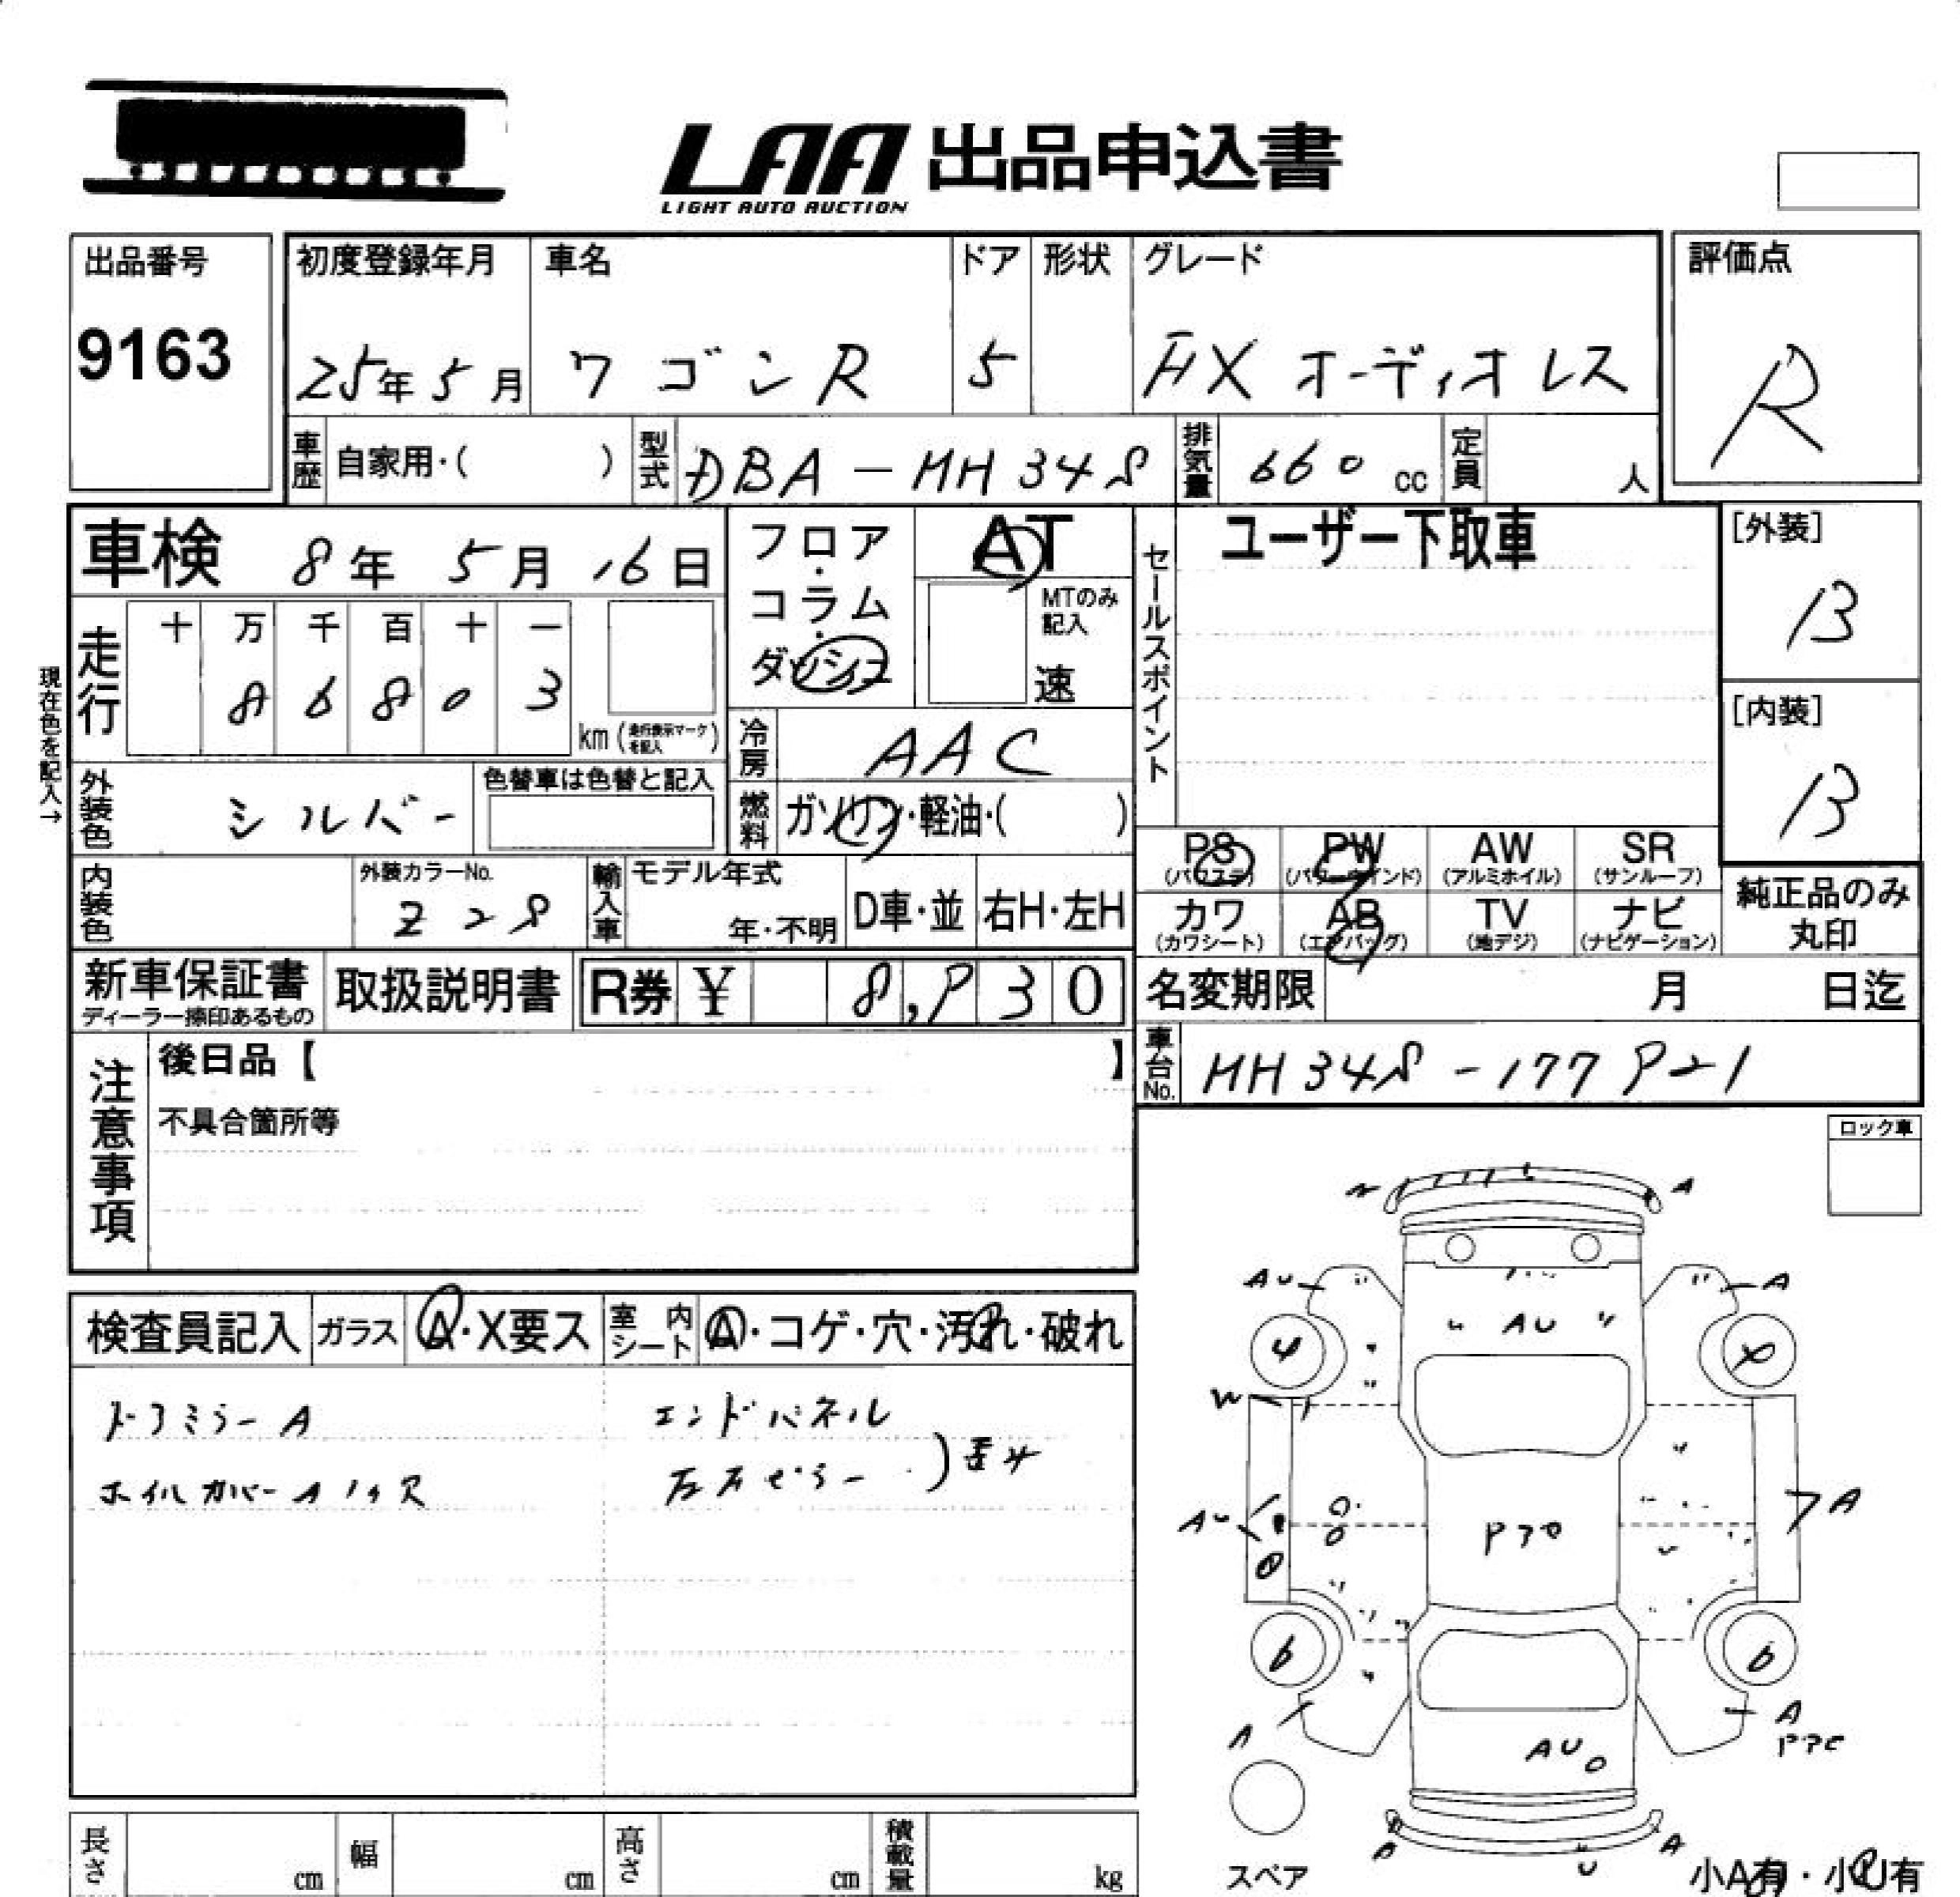 LAA 出品申込書
LIGHT AUTO AUCTION
出品番号
9163
初度登録年月 車名 ドア 形状 グレード
25年5月 ワゴンR 5 FX オーディオレス
評価点
R
車歴 自家用・( ) 型式 DBA-MH34S 排気量 660 cc 定員 人
車検 8年 5月 16日
フロア・コラム・ダッシュ
AT
MTのみ記入
速
セールスポイント
ユーザー下取車
[外装]
B
[内装]
B
現在色を記入→
走行 十 万 千 百 十 一
8 6 8 0 3
km(走行表示マークを記入)
冷房 AAC
外装色 シルバー
色替車は色替と記入
燃料 ガソリン・軽油・( )
PS PW AW SR
(パワステ) (パワーウインド) (アルミホイル) (サンルーフ)
カワ AB TV ナビ
(カワシート) (エアバッグ) (地デジ) (ナビゲーション)
純正品のみ
丸印
内装色
外装カラーNo.
Z2S
輸入車 モデル年式
年・不明 D車・並 右H・左H
新車保証書
ディーラー捺印あるもの
取扱説明書 R券 ¥ 8,930
名変期限 月 日迄
車台No. MH34S-177921
注意事項
後日品【 】
不具合箇所等
ロック車
検査員記入 ガラス A・X要ス 室内シート A・コゲ・穴・汚れ・破れ
ドアミラーA
エンドパネル
左右ピラー
)歪み
ホイルカバーA
N A
AU A
AU
4
W
AU A
6 6
A A
AU
A
U
A
スペア
小A有・小U有
長さ cm 幅 cm 高さ cm 積載量 kg